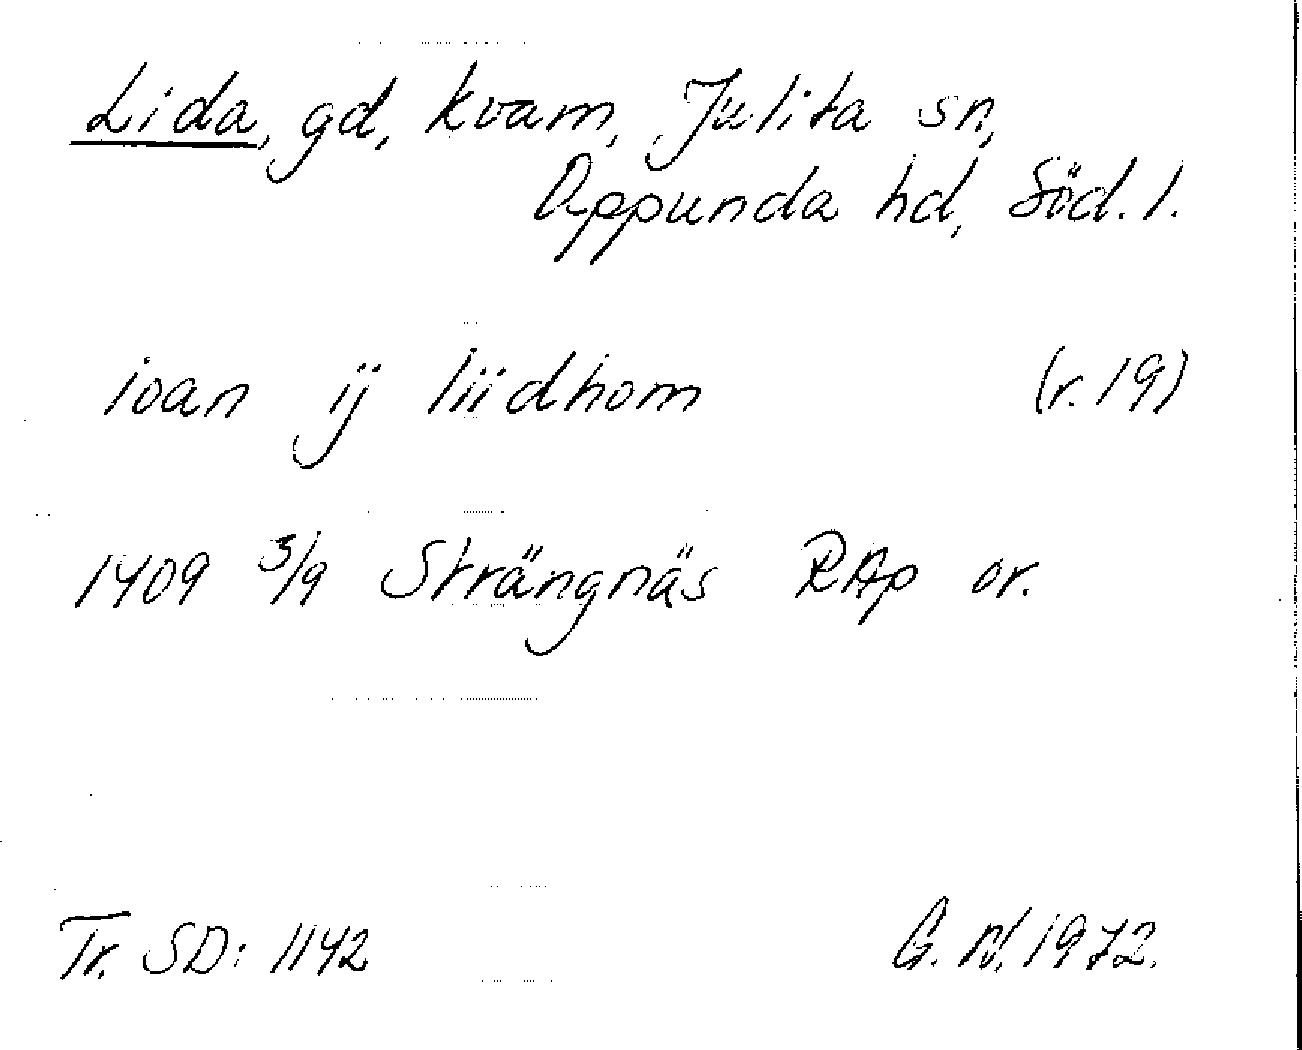 Lida, gd, kvarn, Julita sn,
Oppunda hd, Söd.l.
ioan ij liidhom (r. 19)
1409 3/9 Strängnäs RAp or.
Tr. SD: 1142 G. N. 1972.